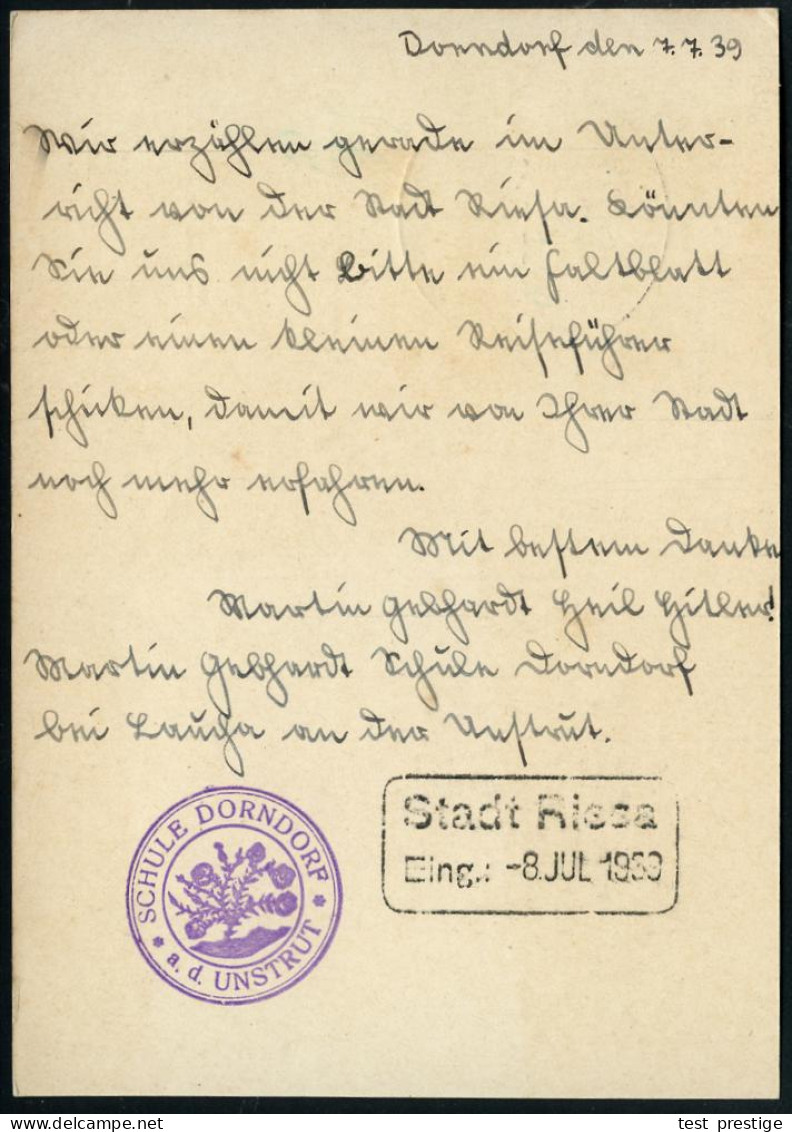 Dorndorf den 7.7.39
Wir erzählen gerade im Unter-
richt von der Stadt Riesa. Könnten
Sie uns nicht bitte ein Faltblatt
oder einen kleinen Reiseführer
schicken, damit wir von Ihrer Stadt
noch mehr erfahren.
Mit bestem Danke
Martin Gebhardt Heil Hitler!
Martin Gebhardt Schule Dorndorf
bei Laucha an der Unstrut.
SCHULE DORNDORF
* a. d. UNSTRUT *
Stadt Riesa
Eing.: -8. JUL 1939
test_prestige